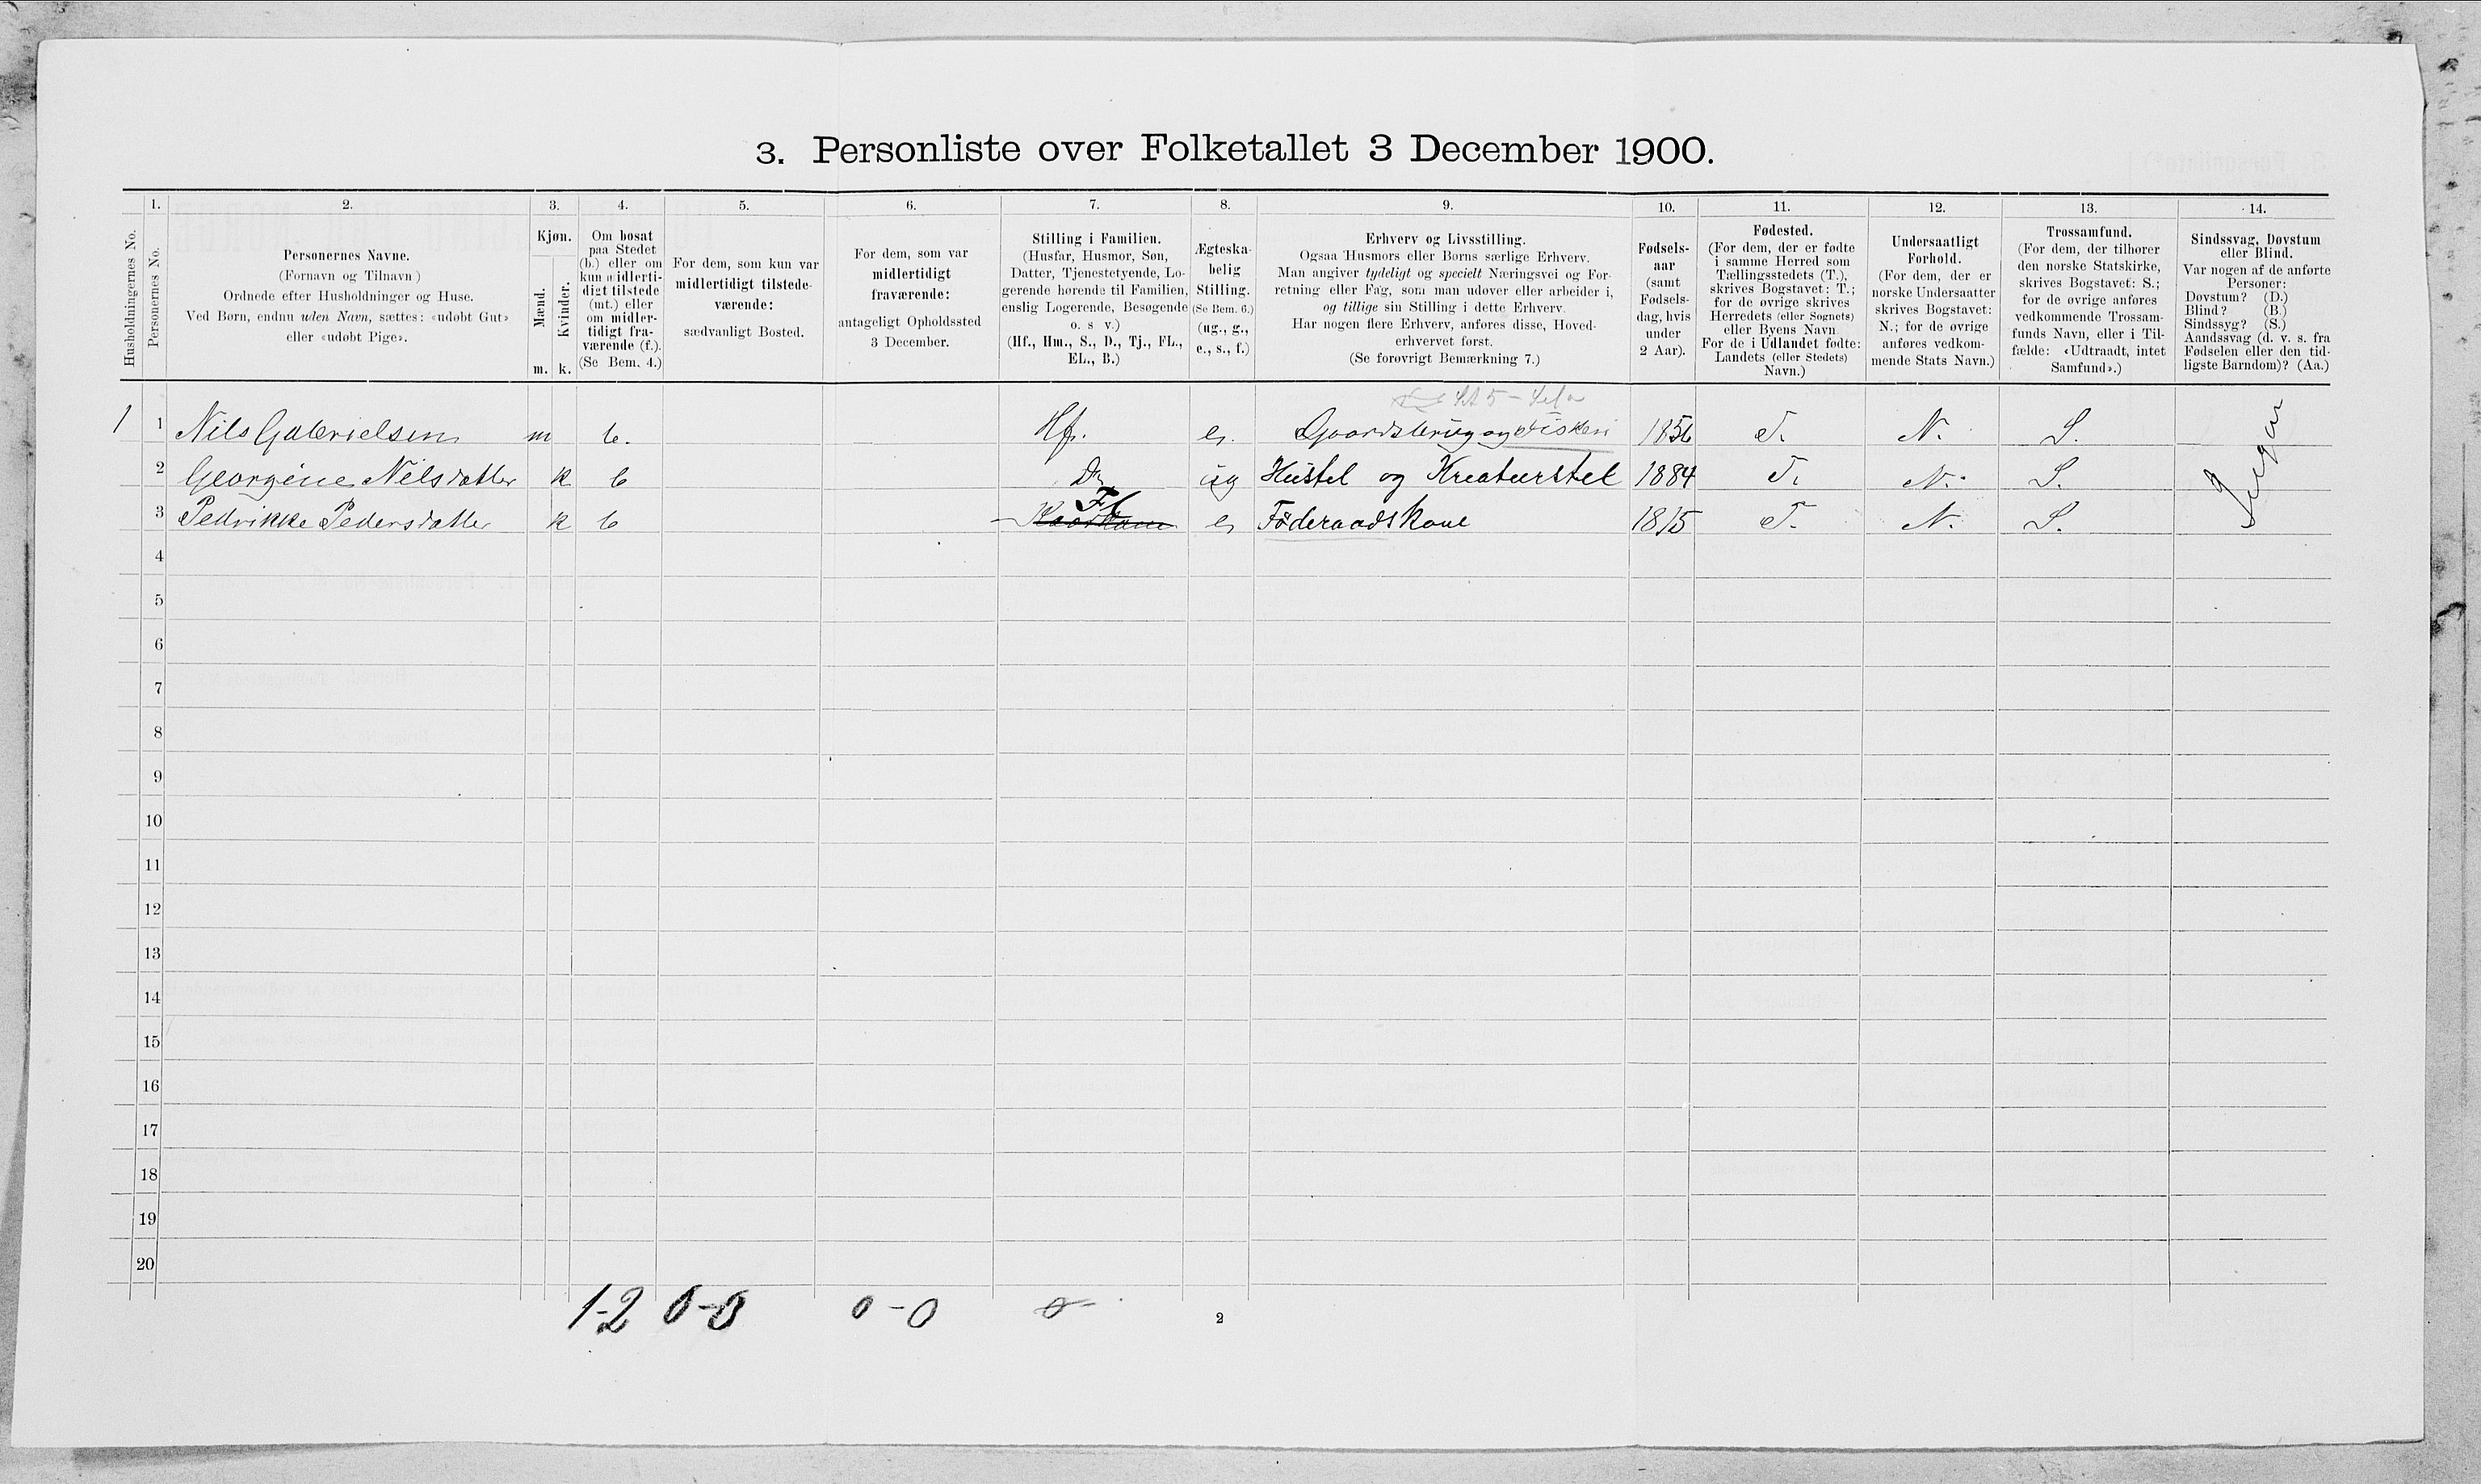 3. Personliste over Folketallet 3 December 1900.
Husholdningernes No.
1.
Personernes No.
2.
Personernes Navne.
(Fornavn og Tilnavn)
Ordnede efter Husholdninger og Huse.
Ved Børn, endnu uden Navn, sættes: «udøbt Gut»
eller «udøbt Pige».
3.
Kjøn.
Mænd.
Kvinder.
m. k.
4.
Om bosat
paa Stedet
(b.) eller om
kun midlerti-
digt tilstede
(mt.) eller
om midler-
tidigt fra-
værende (f.).
(Se Bem. 4.)
5.
For dem, som kun var
midlertidigt tilstede-
værende:
sædvanligt Bosted.
6.
For dem, som var
midlertidigt
fraværende:
antageligt Opholdssted
3 December.
7.
Stilling i Familien.
(Husfar, Husmor, Søn,
Datter, Tjenestetyende, Lo-
gerende hørende til Familien,
enslig Logerende, Besøgende
o. s v.)
(Hf., Hm., S., D., Tj., FL.,
EL., B.)
8.
Ægteska-
belig
Stilling.
(Se Bem. 6.)
(ug., g.,
e., s., f.)
9.
Erhverv og Livsstilling.
Ogsaa Husmors eller Børns særlige Erhverv.
Man angiver tydeligt og specielt Næringsvei og For-
retning eller Fag, som man udøver eller arbeider i,
og tillige sin Stilling i dette Erhverv.
Har nogen flere Erhverv, anføres disse, Hoved-
erhvervet først.
(Se forøvrigt Bemærkning 7.)
10.
Fødsels-
aar
(samt
Fødsels-
dag, hvis
under
2 Aar).
11.
Fødested.
(For dem, der er fødte
i samme Herred som
Tællingsstedets (T.),
skrives Bogstavet: T.;
for de øvrige skrives
Herredets (eller Sognets)
eller Byens Navn
For de i Udlandet fødte:
Landets (eller Stedets)
Navn.)
12.
Undersaatligt
Forhold.
(For dem, der er
norske Undersaatter
skrives Bogstavet:
N.; for de øvrige
anføres vedkom-
mende Stats Navn.)
13.
Trossamfund.
(For dem, der tilhører
den norske Statskirke,
skrives Bogstavet: S.;
for de øvrige anføres
vedkommende Trossam-
funds Navn, eller i Til-
fælde: «Udtraadt, intet
Samfund».)
14.
Sindssvag, Døvstum
eller Blind.
Var nogen af de anførte
Personer:
Døvstum? (D.)
Blind? (B.)
Sindssyg? (S.)
Aandssvag (d. v. s. fra
Fødselen eller den tid-
ligste Barndom)? (Aa.)
1 1 Nils Gabrielsen m b. Hf. e. Gaardsbrug og Fiskeri 1856 T. N. S.
2 Georgine Nilsdatter k b D. ug Hustel og Kreaturstel 1884 T. N. S.
3 Pedrikke Pedersdatter k b Fl e. Føderaadskone 1815 T. N. S.
Ingen
4
5
6
7
8
9
10
11
12
13
14
15
16
17
18
19
20
1-2 0-0 0-0 0-
2